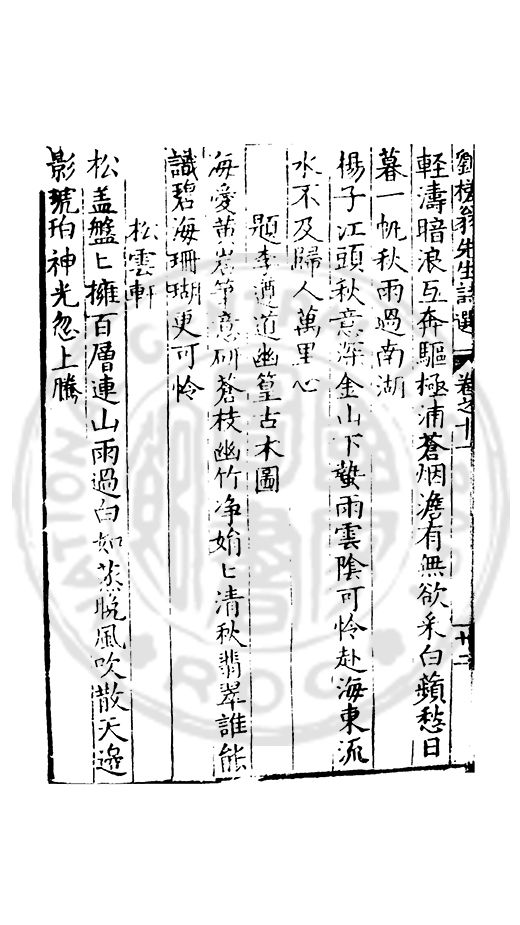 劉槎翁先生詩選 卷之十一 十二
輕濤暗浪互奔驅極浦蒼烟澹有無欲采白蘋愁日
暮一帆秋雨過南湖
楊子江頭秋意深金山下蟄雨雲陰可怜赴海東流
水不及歸人萬里心
題李遵道幽篁古木圖
每愛黄岩筆意研蒼枝幽竹净娟匕清秋翡翠誰能
識碧海珊瑚更可怜
松雲軒
松盖盤匕擁百層連山雨過白如蒸晚風吹散天邊
影琥珀神光忽上騰